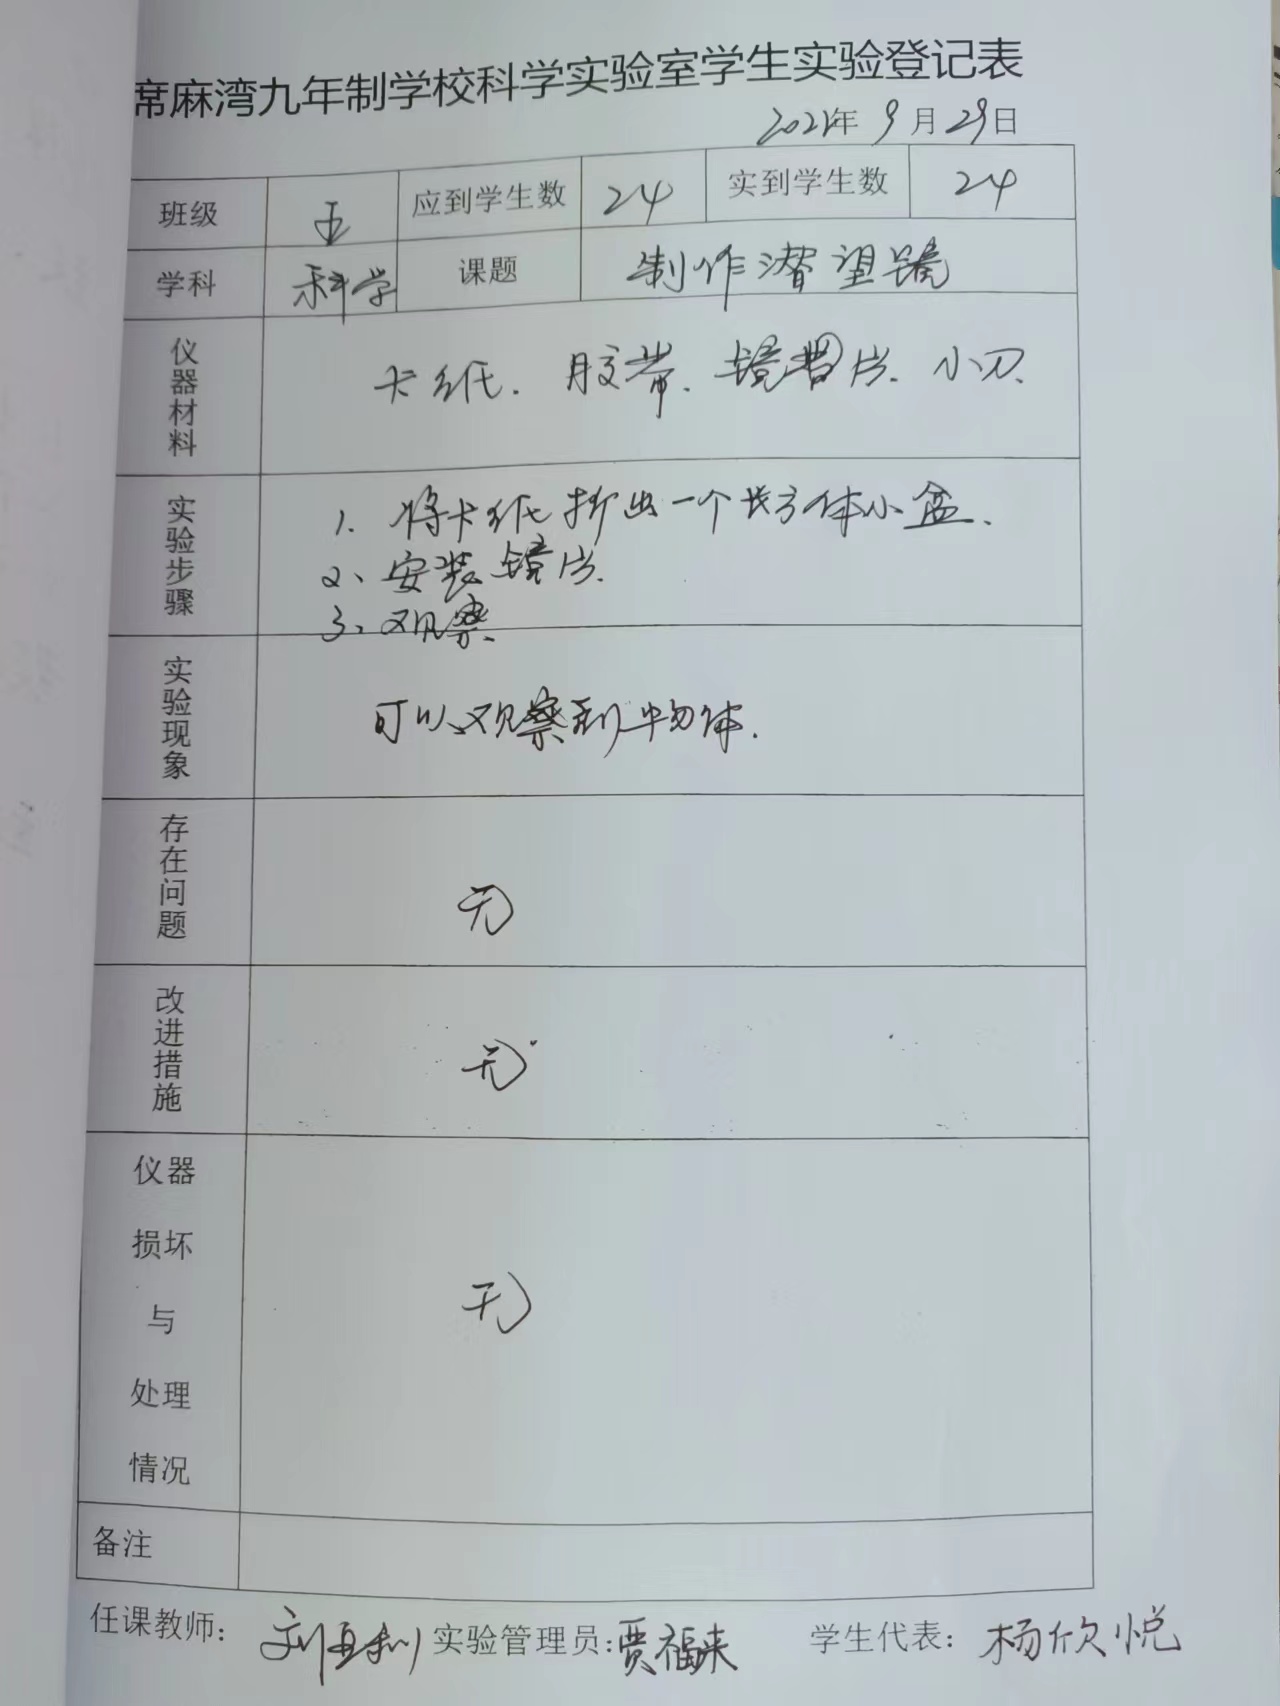 席麻湾九年制学校科学实验室学生实验登记表
2021年9月29日
班级 五 应到学生数 24 实到学生数 24
学科 科学 课题 制作潜望镜
仪器材料 卡纸、胶带、镜片、小刀、
实验步骤 1、将卡纸折出一个长方体小盒、
2、安装镜片、
3、观察
实验现象 可以观察到物体.
存在问题 无
改进措施 无
仪器损坏与处理情况 无
备注
任课教师: 刘亚利 实验管理员:贾福来 学生代表: 杨欣悦